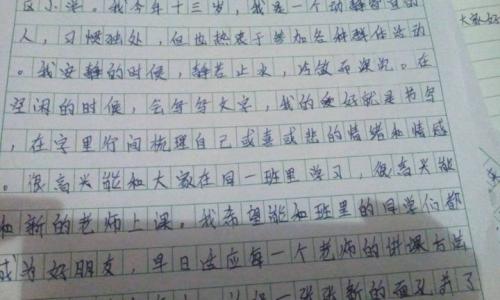 小学。我今年十三岁，我是一个动静皆宜的
人，习惯独处，但也热衷于参加各种集体活动
。我安静的时候，静若止水，沉敛而深沉。在
空闲的时候，会写写文字，我的爱好就是书写
，在字里行间梳理自己或喜或悲的情绪和情感
。很高兴能和大家在同一班里学习，很高兴能
和新的老师上课。我希望能和班里的同学们都
成为好朋友，早日适应每一个老师的讲课方法
一张张新的面孔
大家好